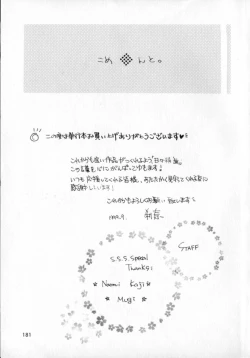 こめんと。
この度は単行本お買い上げありがとうございます♥
これからも良い作品がつくれるよう日々精進。
この言葉を心にがんばってゆきます!
いつも応援してくれる皆様、あたたかく見守ってくれる方に
感謝しています!
これからもよろしくお願い致します!
STAFF
S.S.S. Special
Thanks;
* Naomi Kaji *
* Mugi *
181